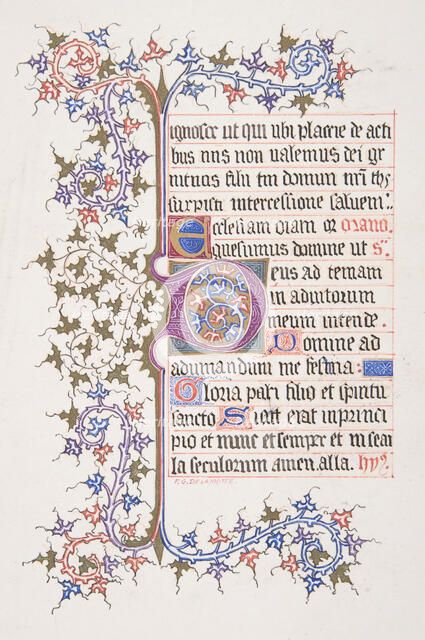 ignosce ut qui tibi placere de acti
bus nris non ualemus dei gr
nitricis filii tui domini nri
xpisti intercessione saluem
Ecclesiam oram or Orano
quesumus domine ut
Deus ad teniam
in aduitorum
meum intende.
Domine ad
adiuuandum me festina:
Gloria patri filio et spiritu
sancto Sicut erat in princi
pio et nunc et semper et in secu
la seculorum amen. alla. hys
F. G. DELAMOTTE.